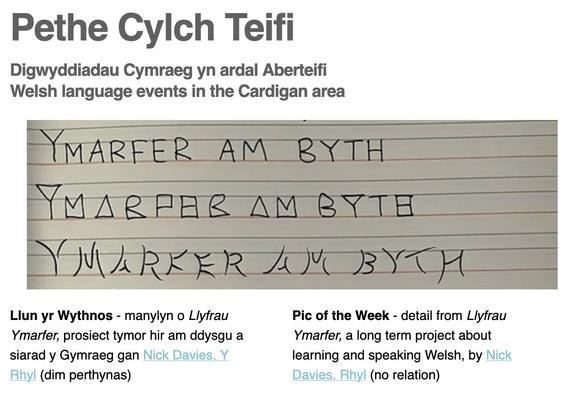 Pethe Cylch Teifi
Digwyddiadau Cymraeg yn ardal Aberteifi
Welsh language events in the Cardigan area
YMARFER AM BYTH
YMARFER AM BYTH
YMARFER AM BYTH
Llun yr Wythnos - manylyn o Llyfrau
Ymarfer, prosiect tymor hir am ddysgu a
siarad y Gymraeg gan Nick Davies, Y
Rhyl (dim perthynas)
Pic of the Week - detail from Llyfrau
Ymarfer, a long term project about
learning and speaking Welsh, by Nick
Davies, Rhyl (no relation)